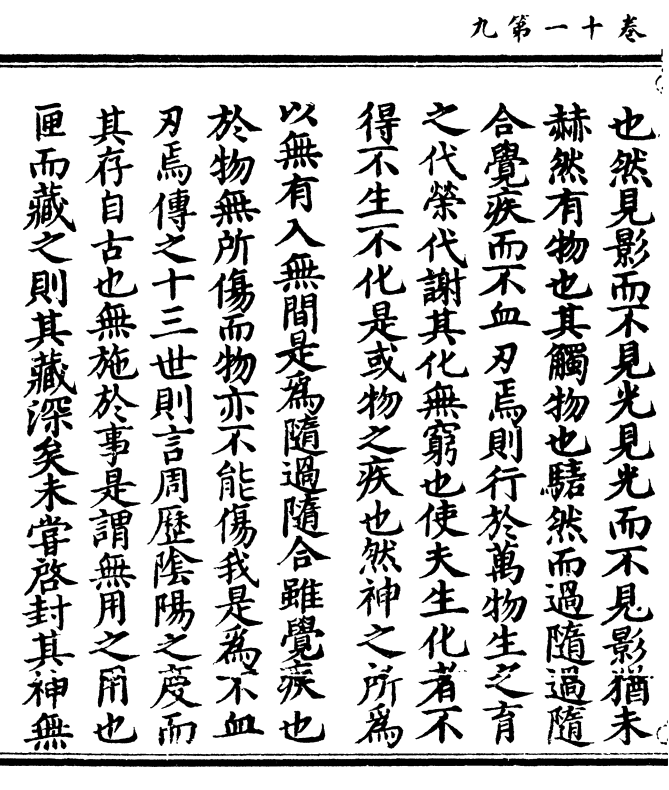 卷十一第九
也然見影而不見光見光而不見影猶未
赫然有物也其觸物也騞然而過隨過隨
合覺疾而不血刃焉則行於萬物生之育
之代榮代謝其化無窮也使夫生化者不
得不生不化是或物之疾也然神之所爲
以無有入無間是爲隨過隨合雖覺疾也
於物無所傷而物亦不能傷我是爲不血
刃焉傳之十三世則言周歷陰陽之度而
其存自古也無施於事是謂無用之用也
匣而藏之則其藏深矣未嘗啓封其神無